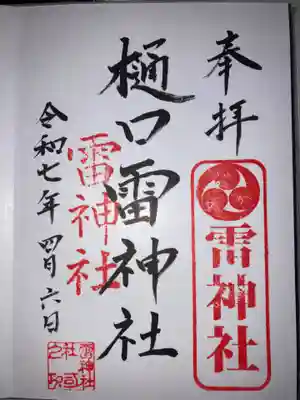 奉拝
雷神社
樋口雷神社
雷神社
令和七年 四月 六日
雷神社
社司
之印